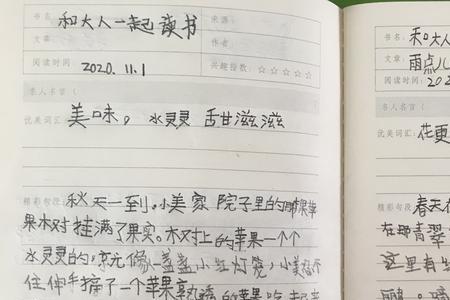 书名： 和大人一起读书
来源：
文章：
作者：
阅读时间： 2020.11.1
兴趣指数：☆☆☆☆☆
名人名言（
优美词汇： 美味， 水灵灵 舌甘滋滋
精彩句段： 秋天一到。小美家 院子里的苹
果木对挂满了果实。木对上的苹果一个个
水灵灵的，
像 盏盏小红灯笼，小美
住伸手摘了一个苹果
的苹果吃起来
书名： 和大人
文章： 雨点儿
阅读时间： 202
名人名言（
优美词汇： 花更
精彩句段： 春天在
在那青翠
这里有